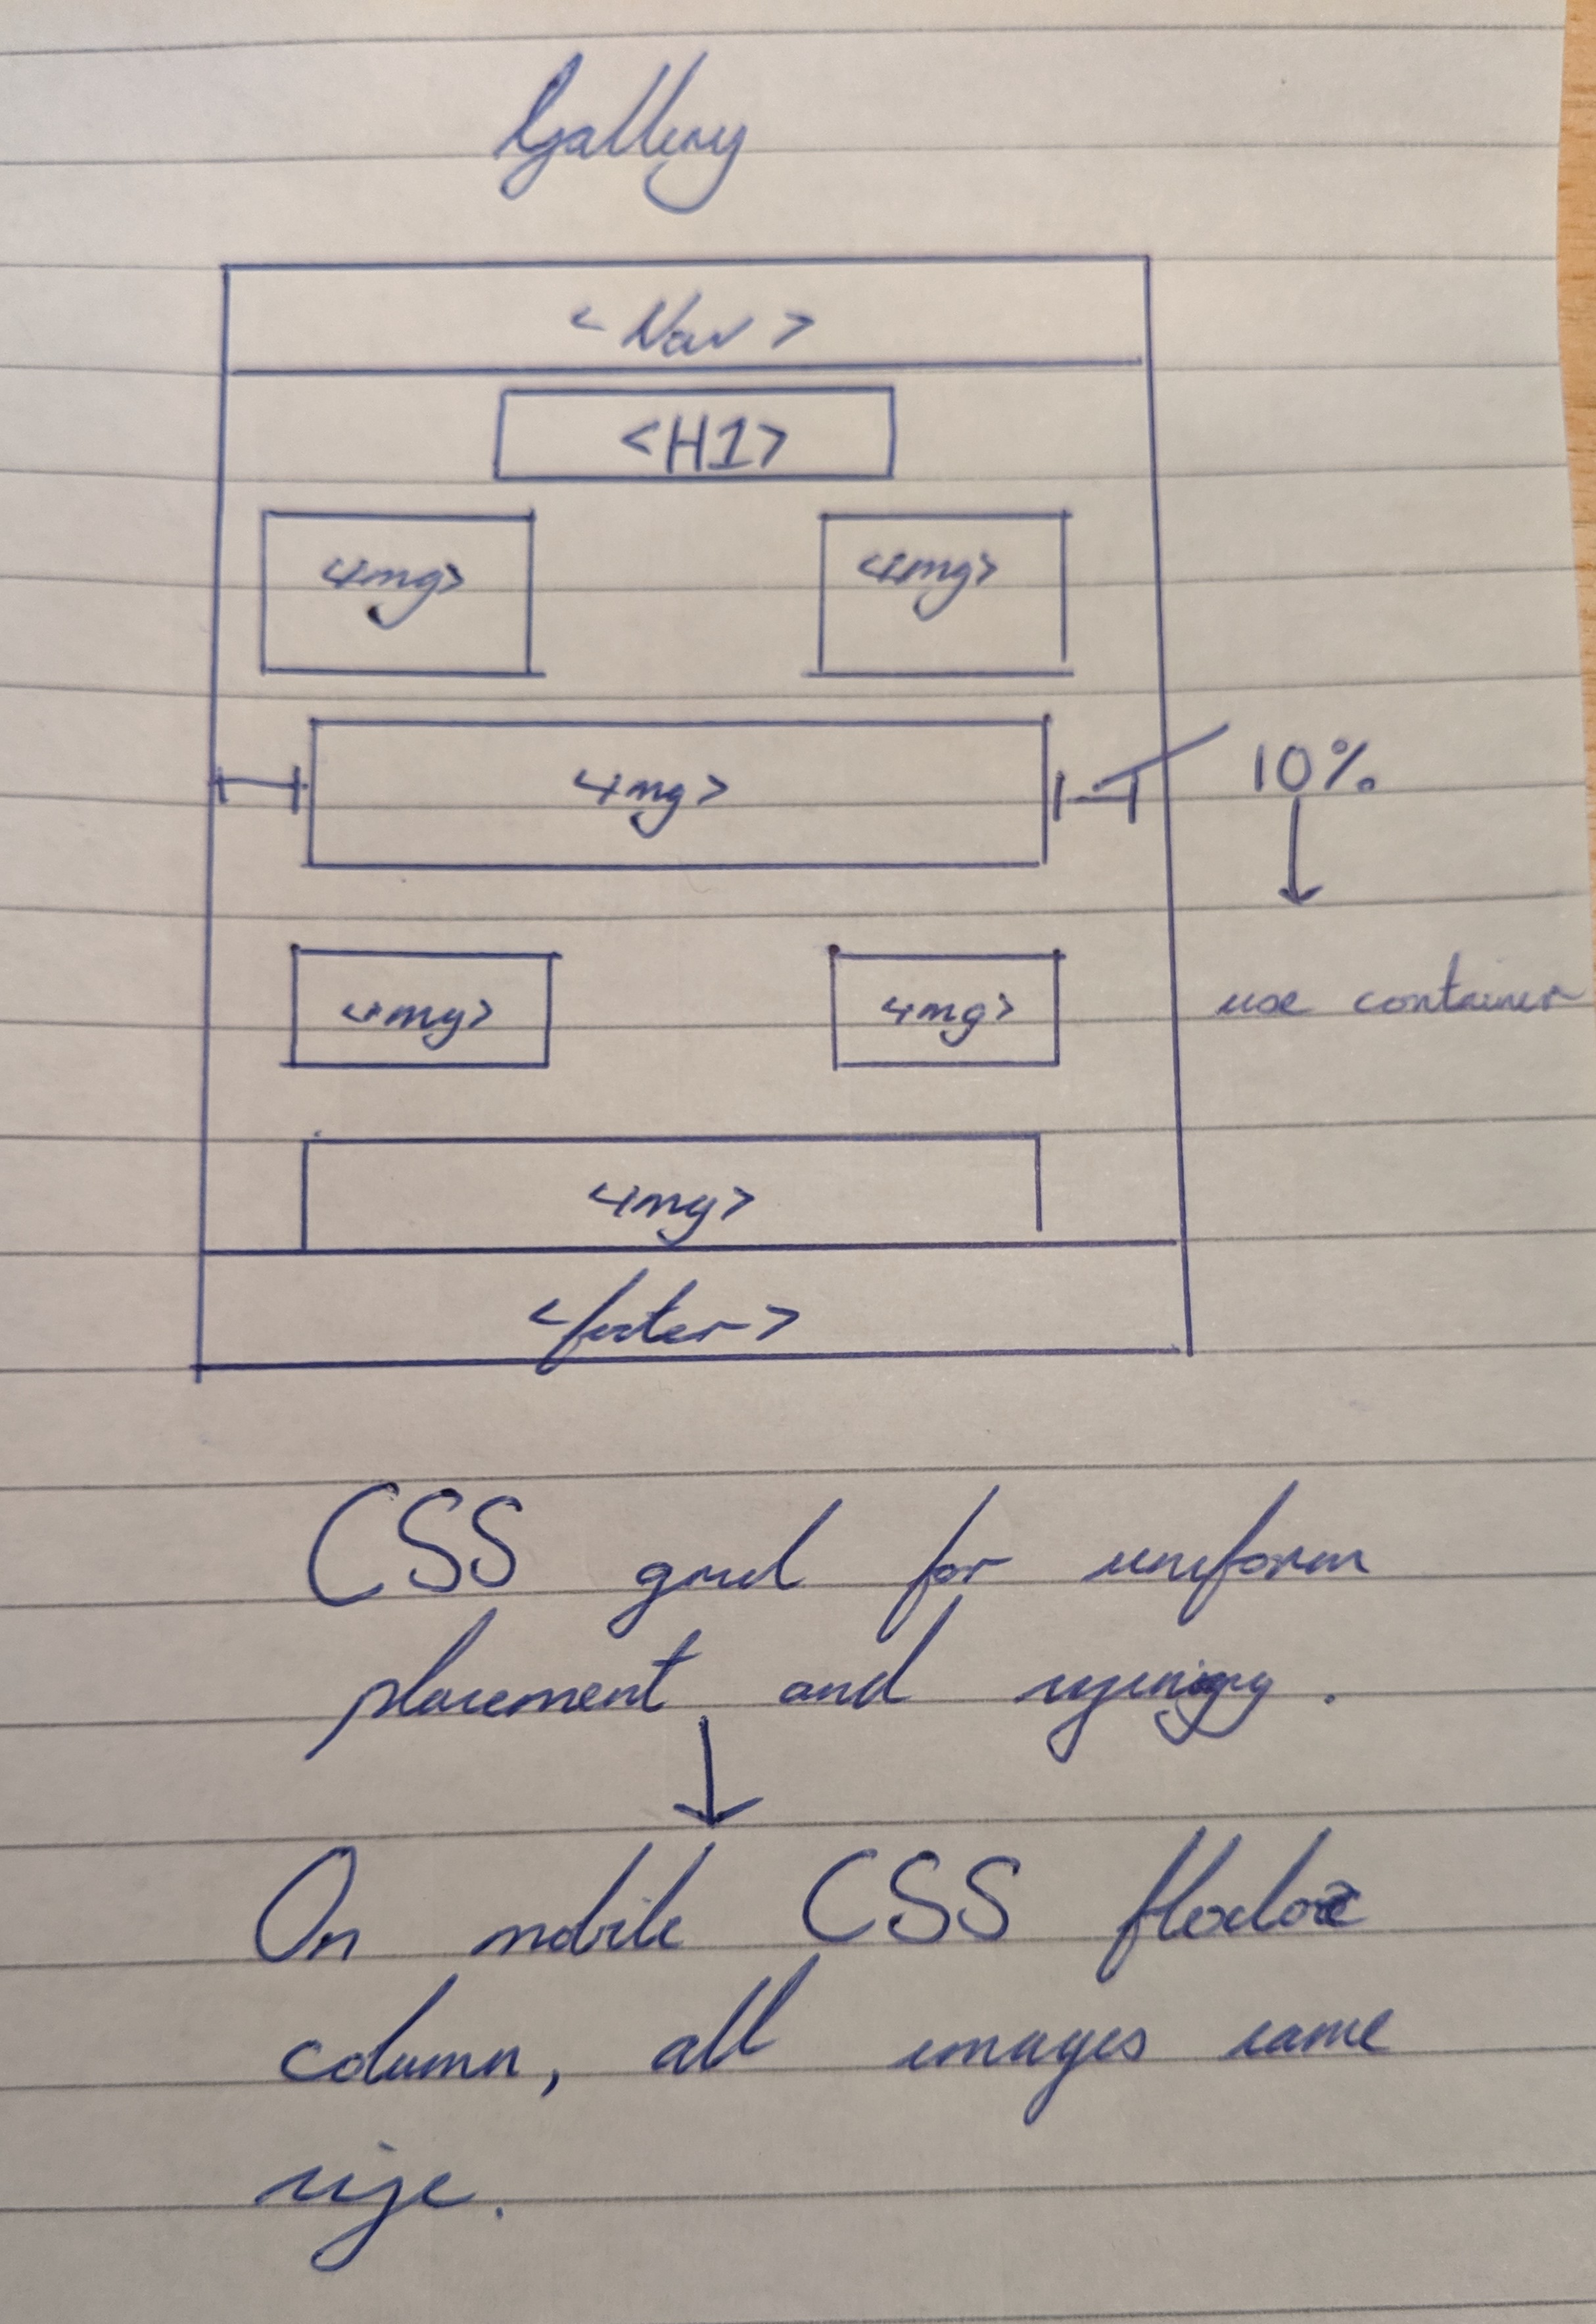 Gallery
<Nav>
<H1>
<img> <img>
<img> 10%
<img> <img> use container
<img>
<footer>
CSS grid for uniform
placement and sizing.
On mobile CSS flexbox
column, all images same
size.